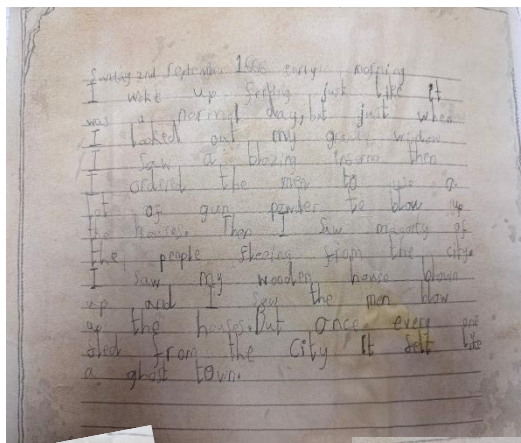 Sunday 2nd September 1666 early morning
I woke up feeling just like it
was a normal day, but just when
I looked out my window
I saw a blazing then
I ordered the men to use a
lot of gun powder to blow up
the houses. Then I saw majority of
the people fleeing from the city.
I saw my wooden house blown
up and I saw the men blow
up the houses. But once every one
fled from the city It felt like
a ghost town.